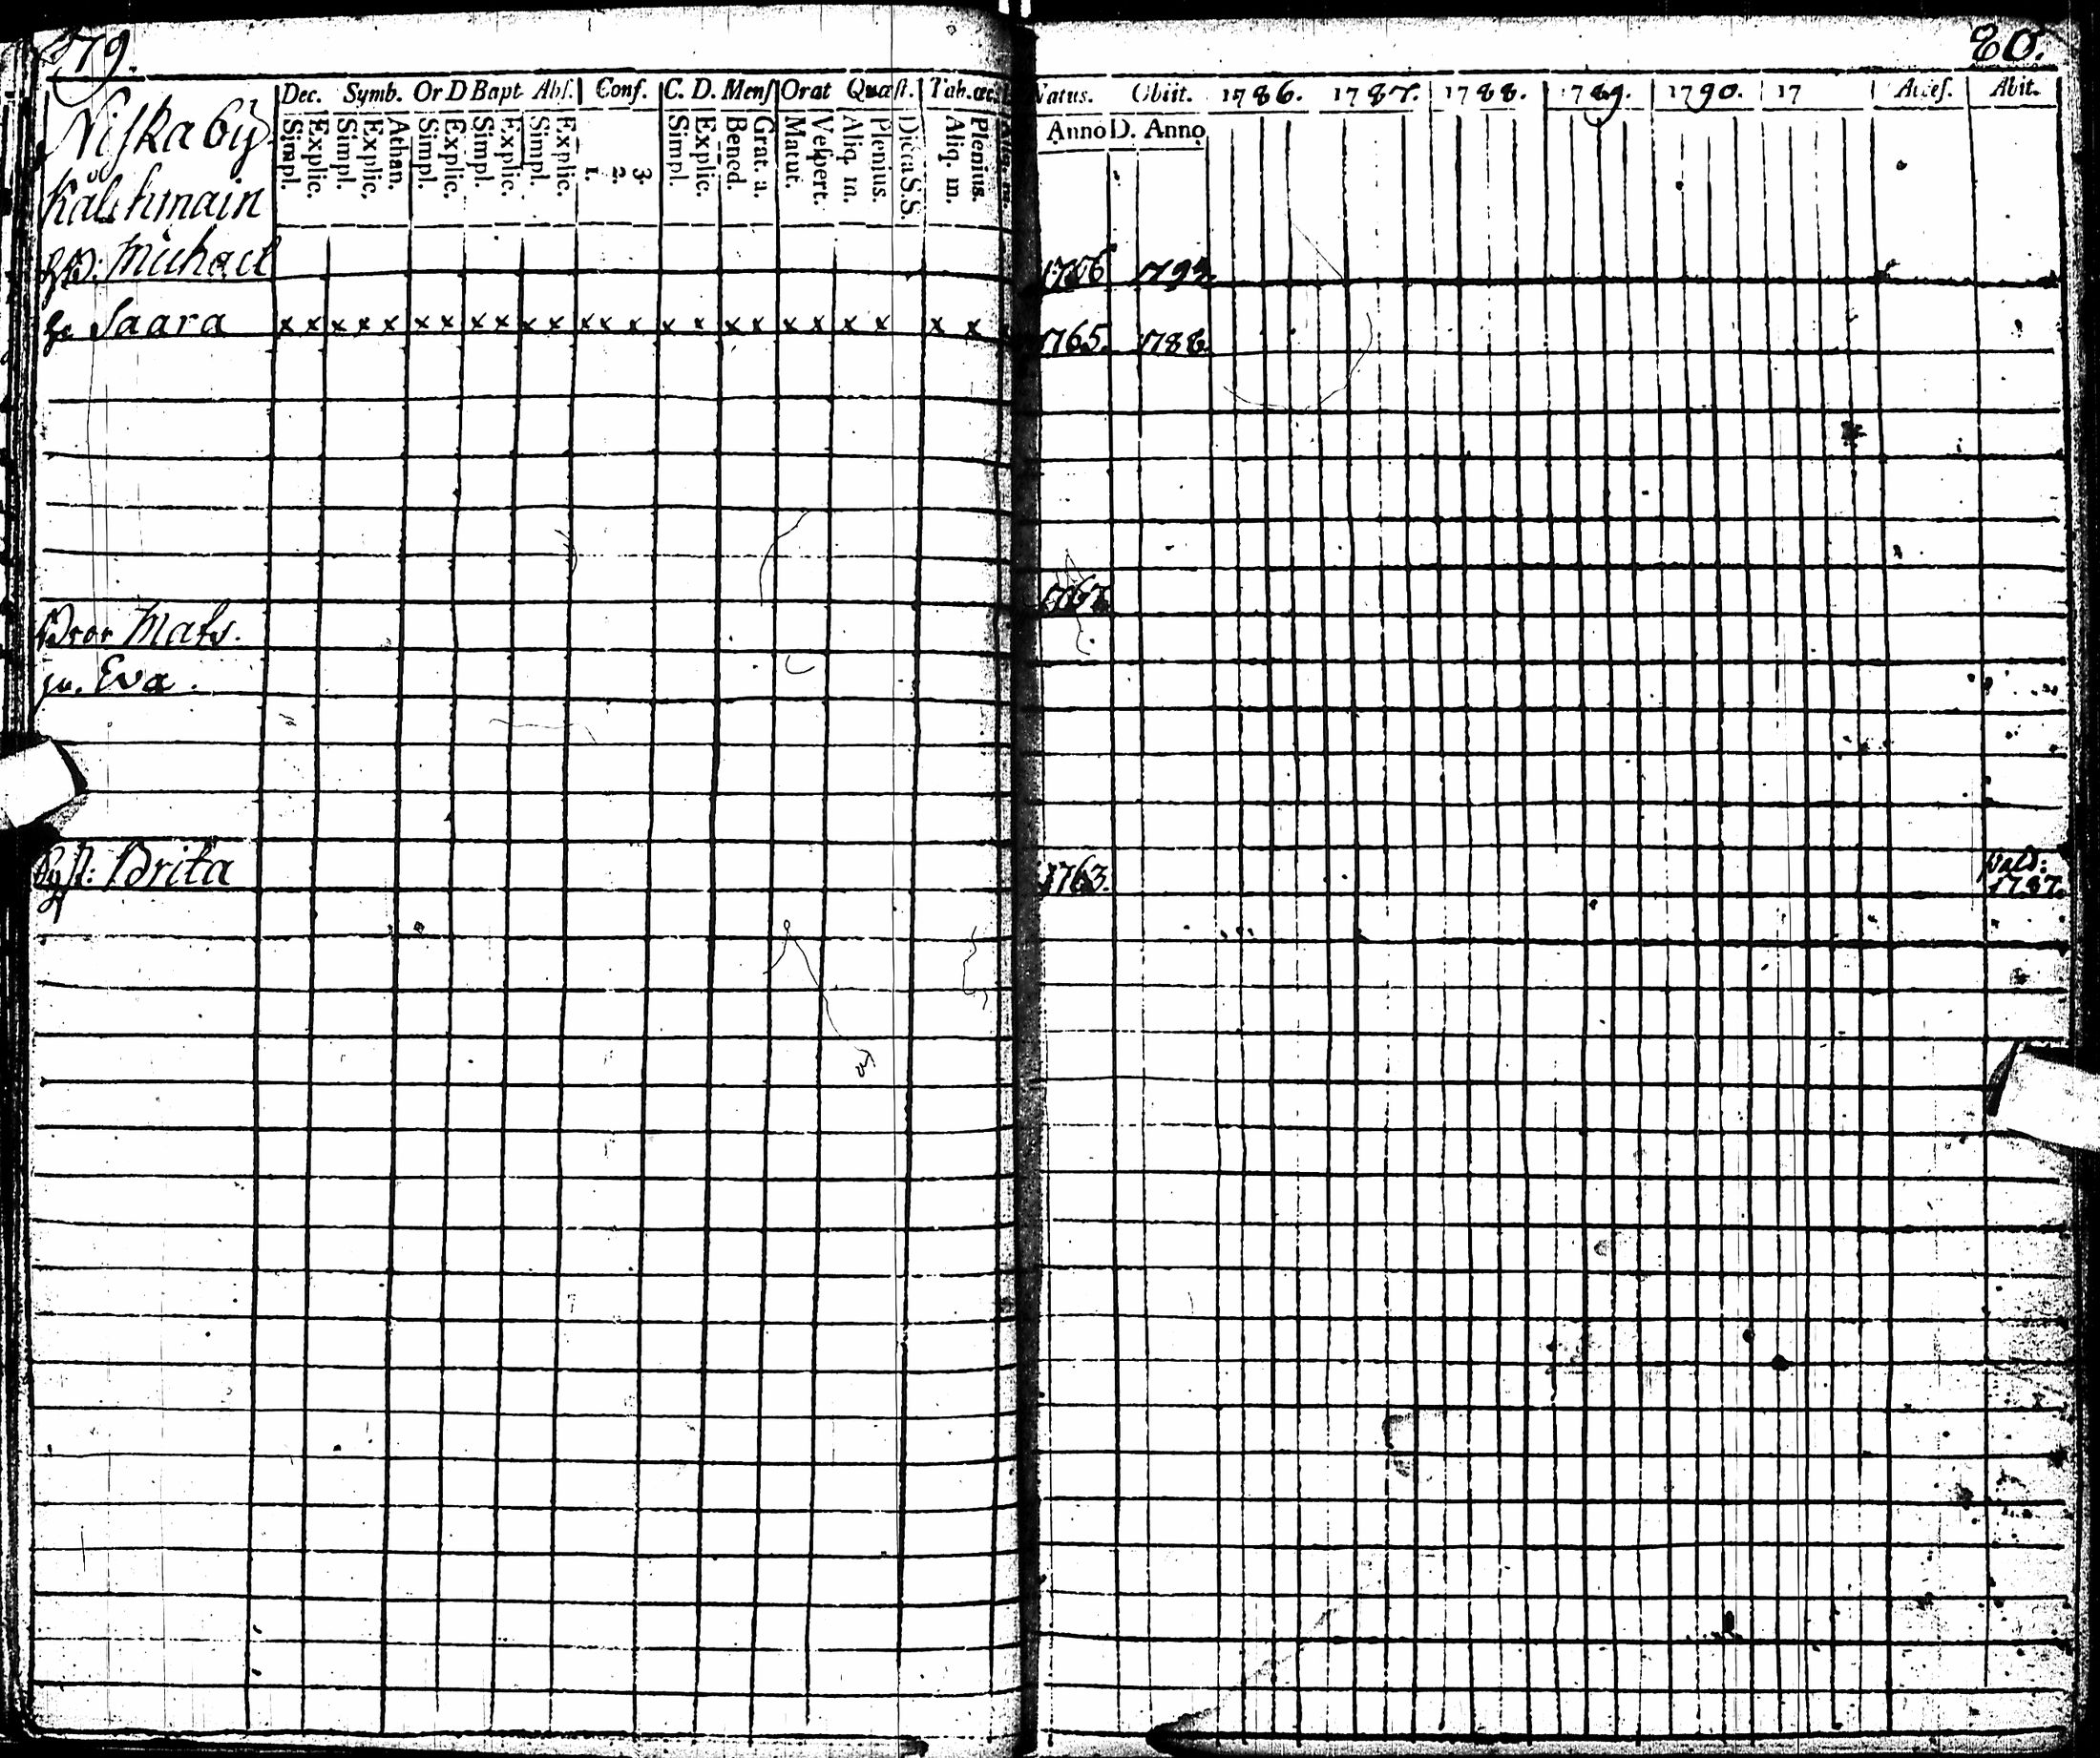 79.
Dec. Symb. Or D Bapt Abſ. Conf. C. D. Menſ Orat Quæſt. Tab. œc.
Simpl. Explic. Simpl. Explic. Athan. Simpl. Explic. Simpl. Explic. Simpl. Explic. 1. 2. 3. Simpl. Explic. Bened. Grat. a. Matut. Veſpert. Aliq. m. Plenius. Dicta S.S. Aliq. m. Plenius.
Niſka by
Michael
Saara x x x x x x x x x x x x x x x x x x x x x x x x
Bror Mats.
hu. Eva.
Brita
80.
Natus. Obiit. 1786. 1787. 1788. 1789. 1790. 17 Acceſ. Abit.
Anno D. Anno
1765. 1788.
1763. 1787.